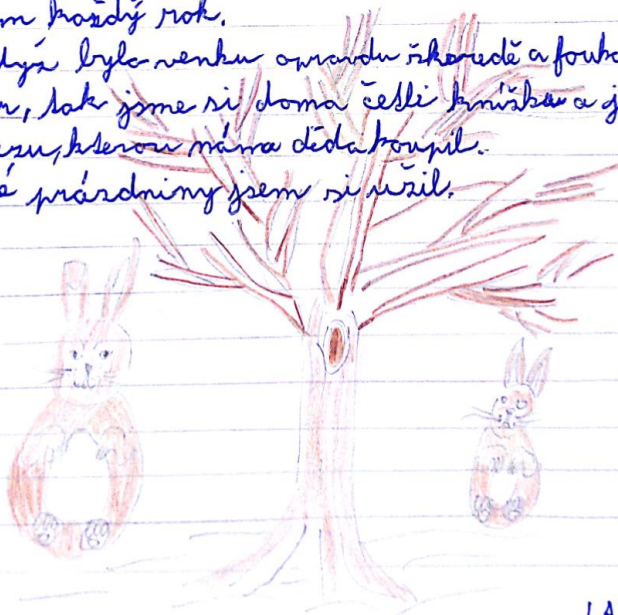 m každý rok.
dyž bylo venku opravdu škaredě a fouka
r, tak jsme si doma četli knížku a j
zu, kterou náma děda koupil.
é prázdniny jsem si užil.